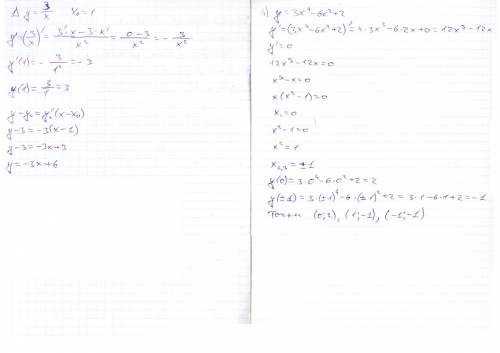 1) y = 3/x   x₀ = 1
y' = (3/x)' = (3'·x - 3·x')/x² = (0-3)/x² = - 3/x²
y'(1) = - 3/1² = -3
y(1) = 3/1 = 3
y - y₀ = y₀'(x - x₀)
y - 3 = -3(x - 1)
y - 3 = -3x + 3
y = -3x + 6
4) y = 3x⁴ - 6x² + 2
y' = (3x⁴ - 6x² + 2)' = 4·3x³ - 6·2x + 0 = 12x³ - 12x
y' = 0
12x³ - 12x = 0
x³ - x = 0
x(x² - 1) = 0
x₁ = 0
x² - 1 = 0
x² = 1
x₂,₃ = ±1
y(0) = 3·0⁴ - 6·0² + 2 = 2
y(±1) = 3·(±1)⁴ - 6·(±1)² + 2 = 3·1 - 6·1 + 2 = -1
Точки (0; 2), (1; -1), (-1; -1)